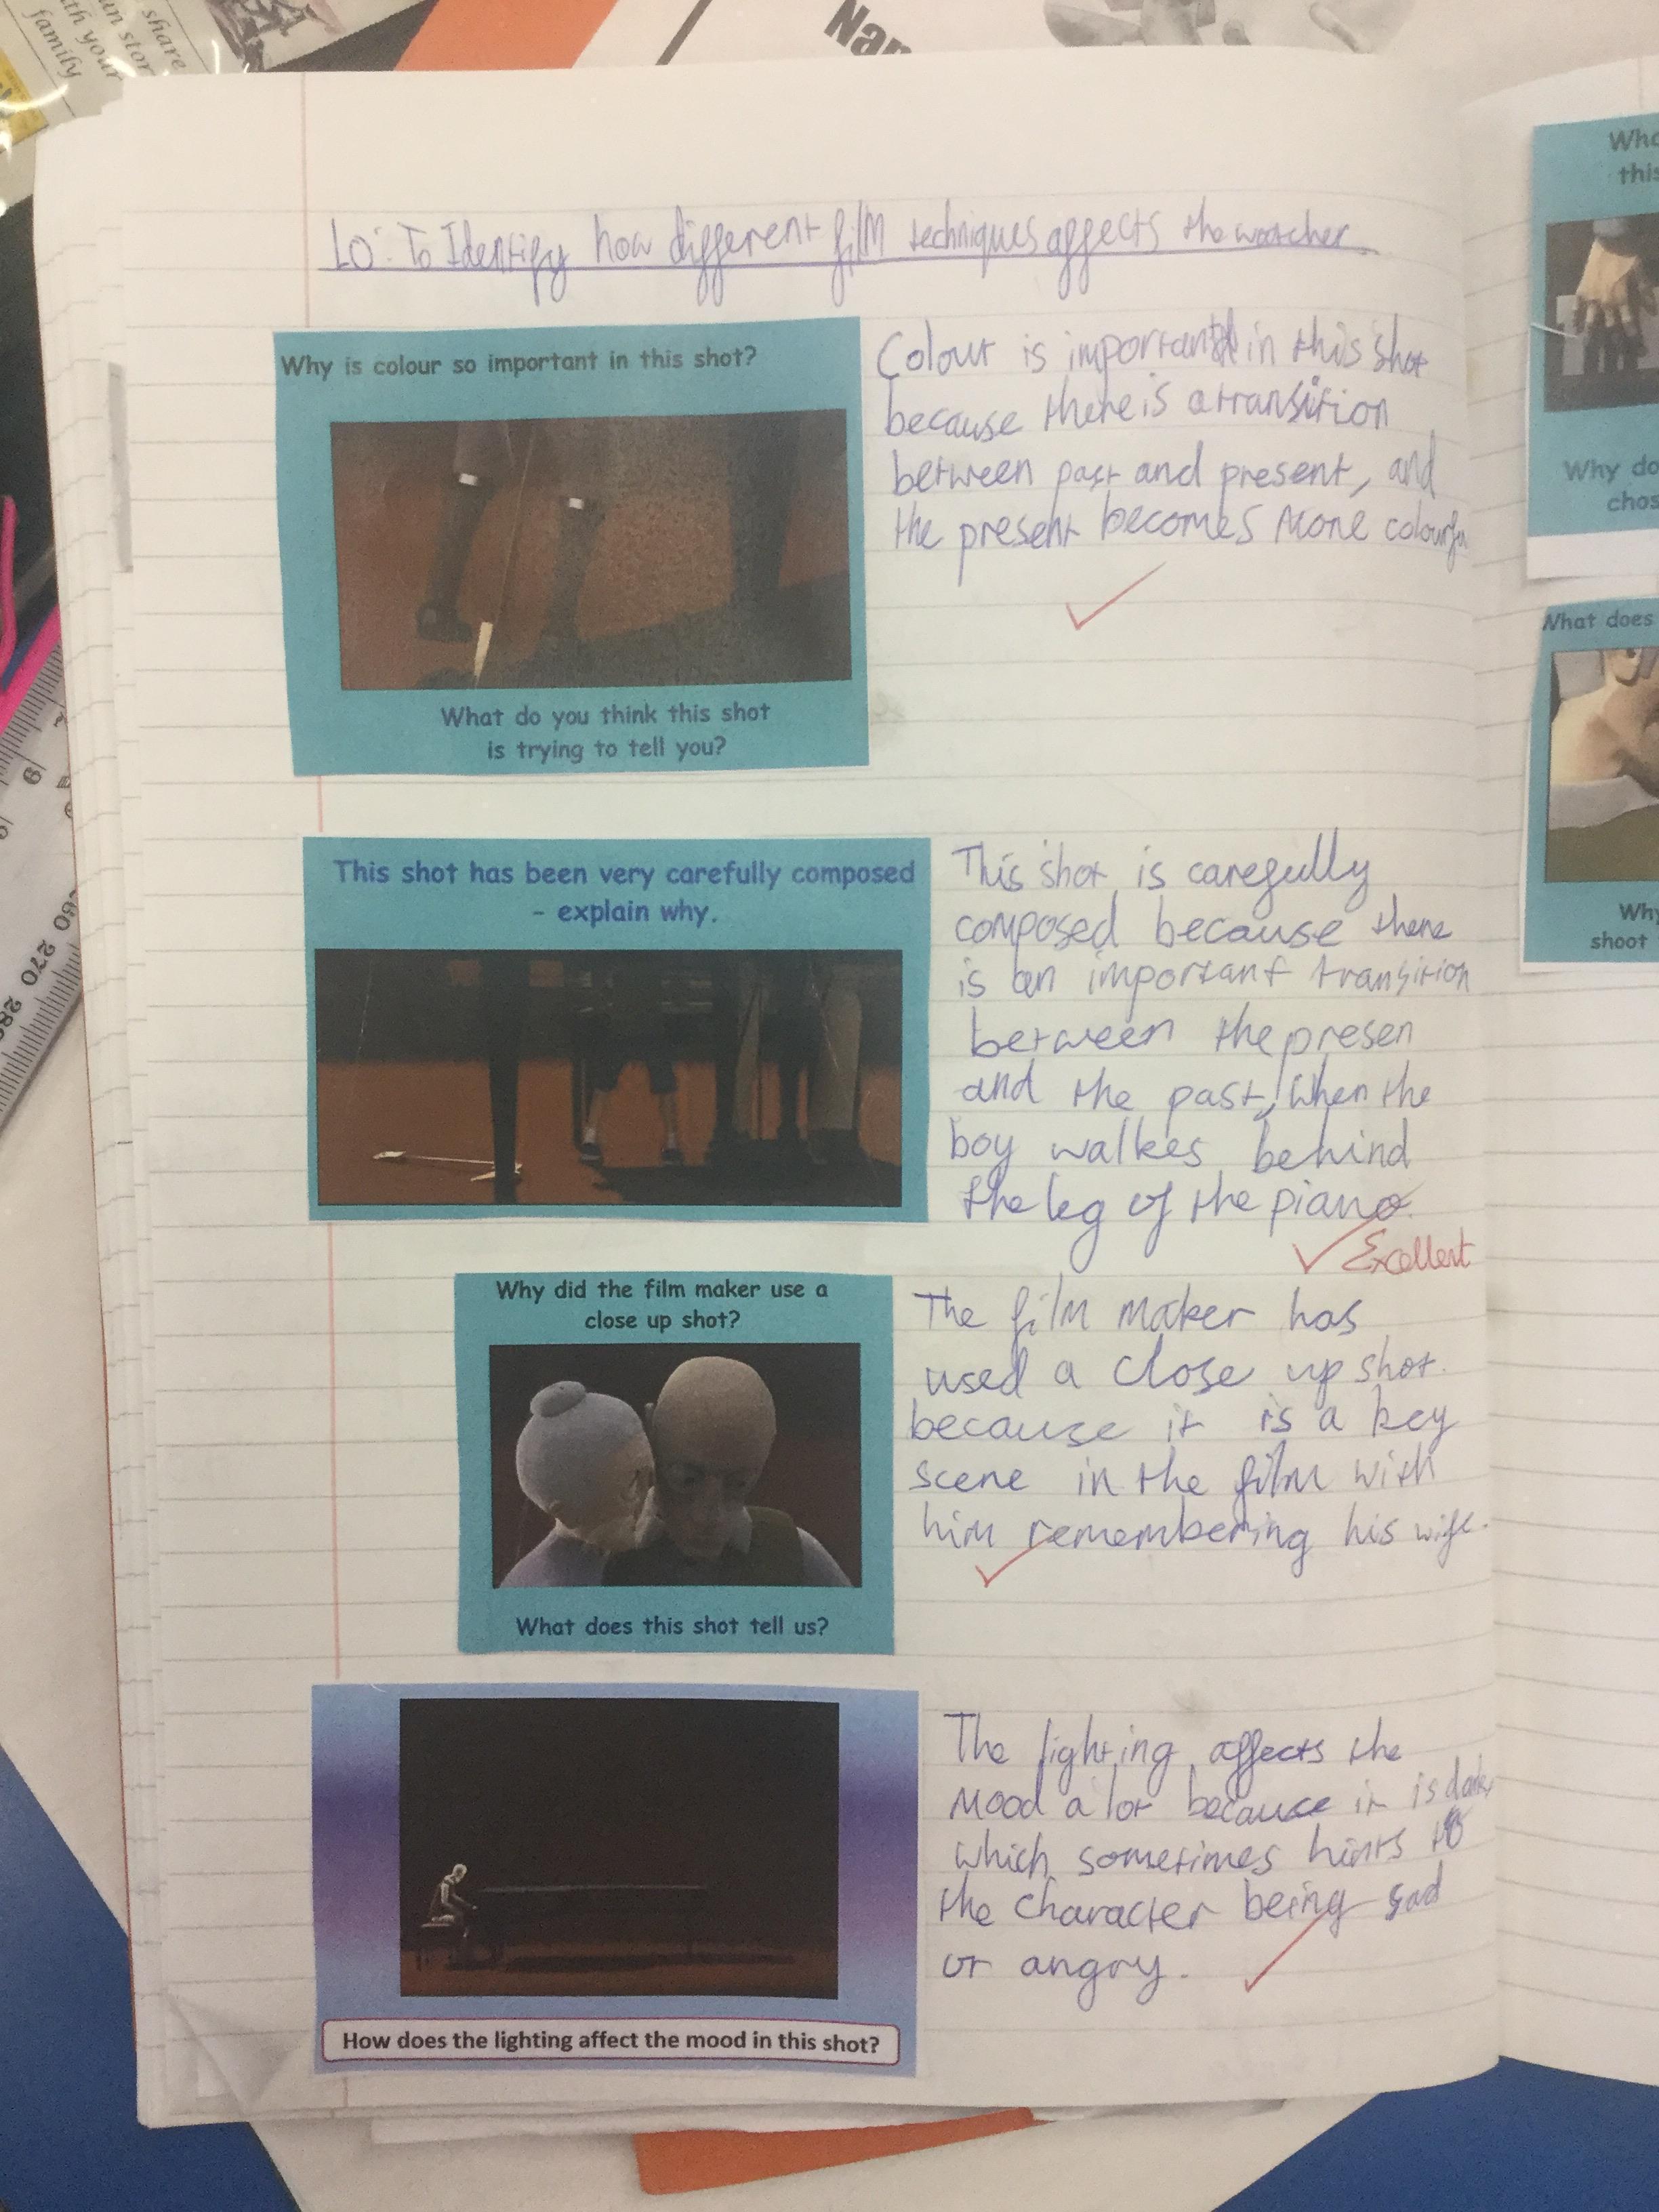 share
un stor
th your
family
Nar
LO: To Identify how different film techniques affects the watcher
Why is colour so important in this shot?
What do you think this shot
is trying to tell you?
Colour is important in this shot
because there is a transition
between past and present, and
the present becomes more colourfu
This shot has been very carefully composed
- explain why.
This shot is carefully
composed because there
is an important transition
between the presen
and the past, When the
boy walkes behind
the leg of the piano.
Excellent
Why did the film maker use a
close up shot?
What does this shot tell us?
The film maker has
used a close up shot.
because it is a key
scene in the film with
him remembering his wife.
How does the lighting affect the mood in this shot?
The lighting affects the
mood a lot because it is dark
which sometimes hints to
the character being sad
or angry.
this
Why do
chos
What does
Why
shoot
270